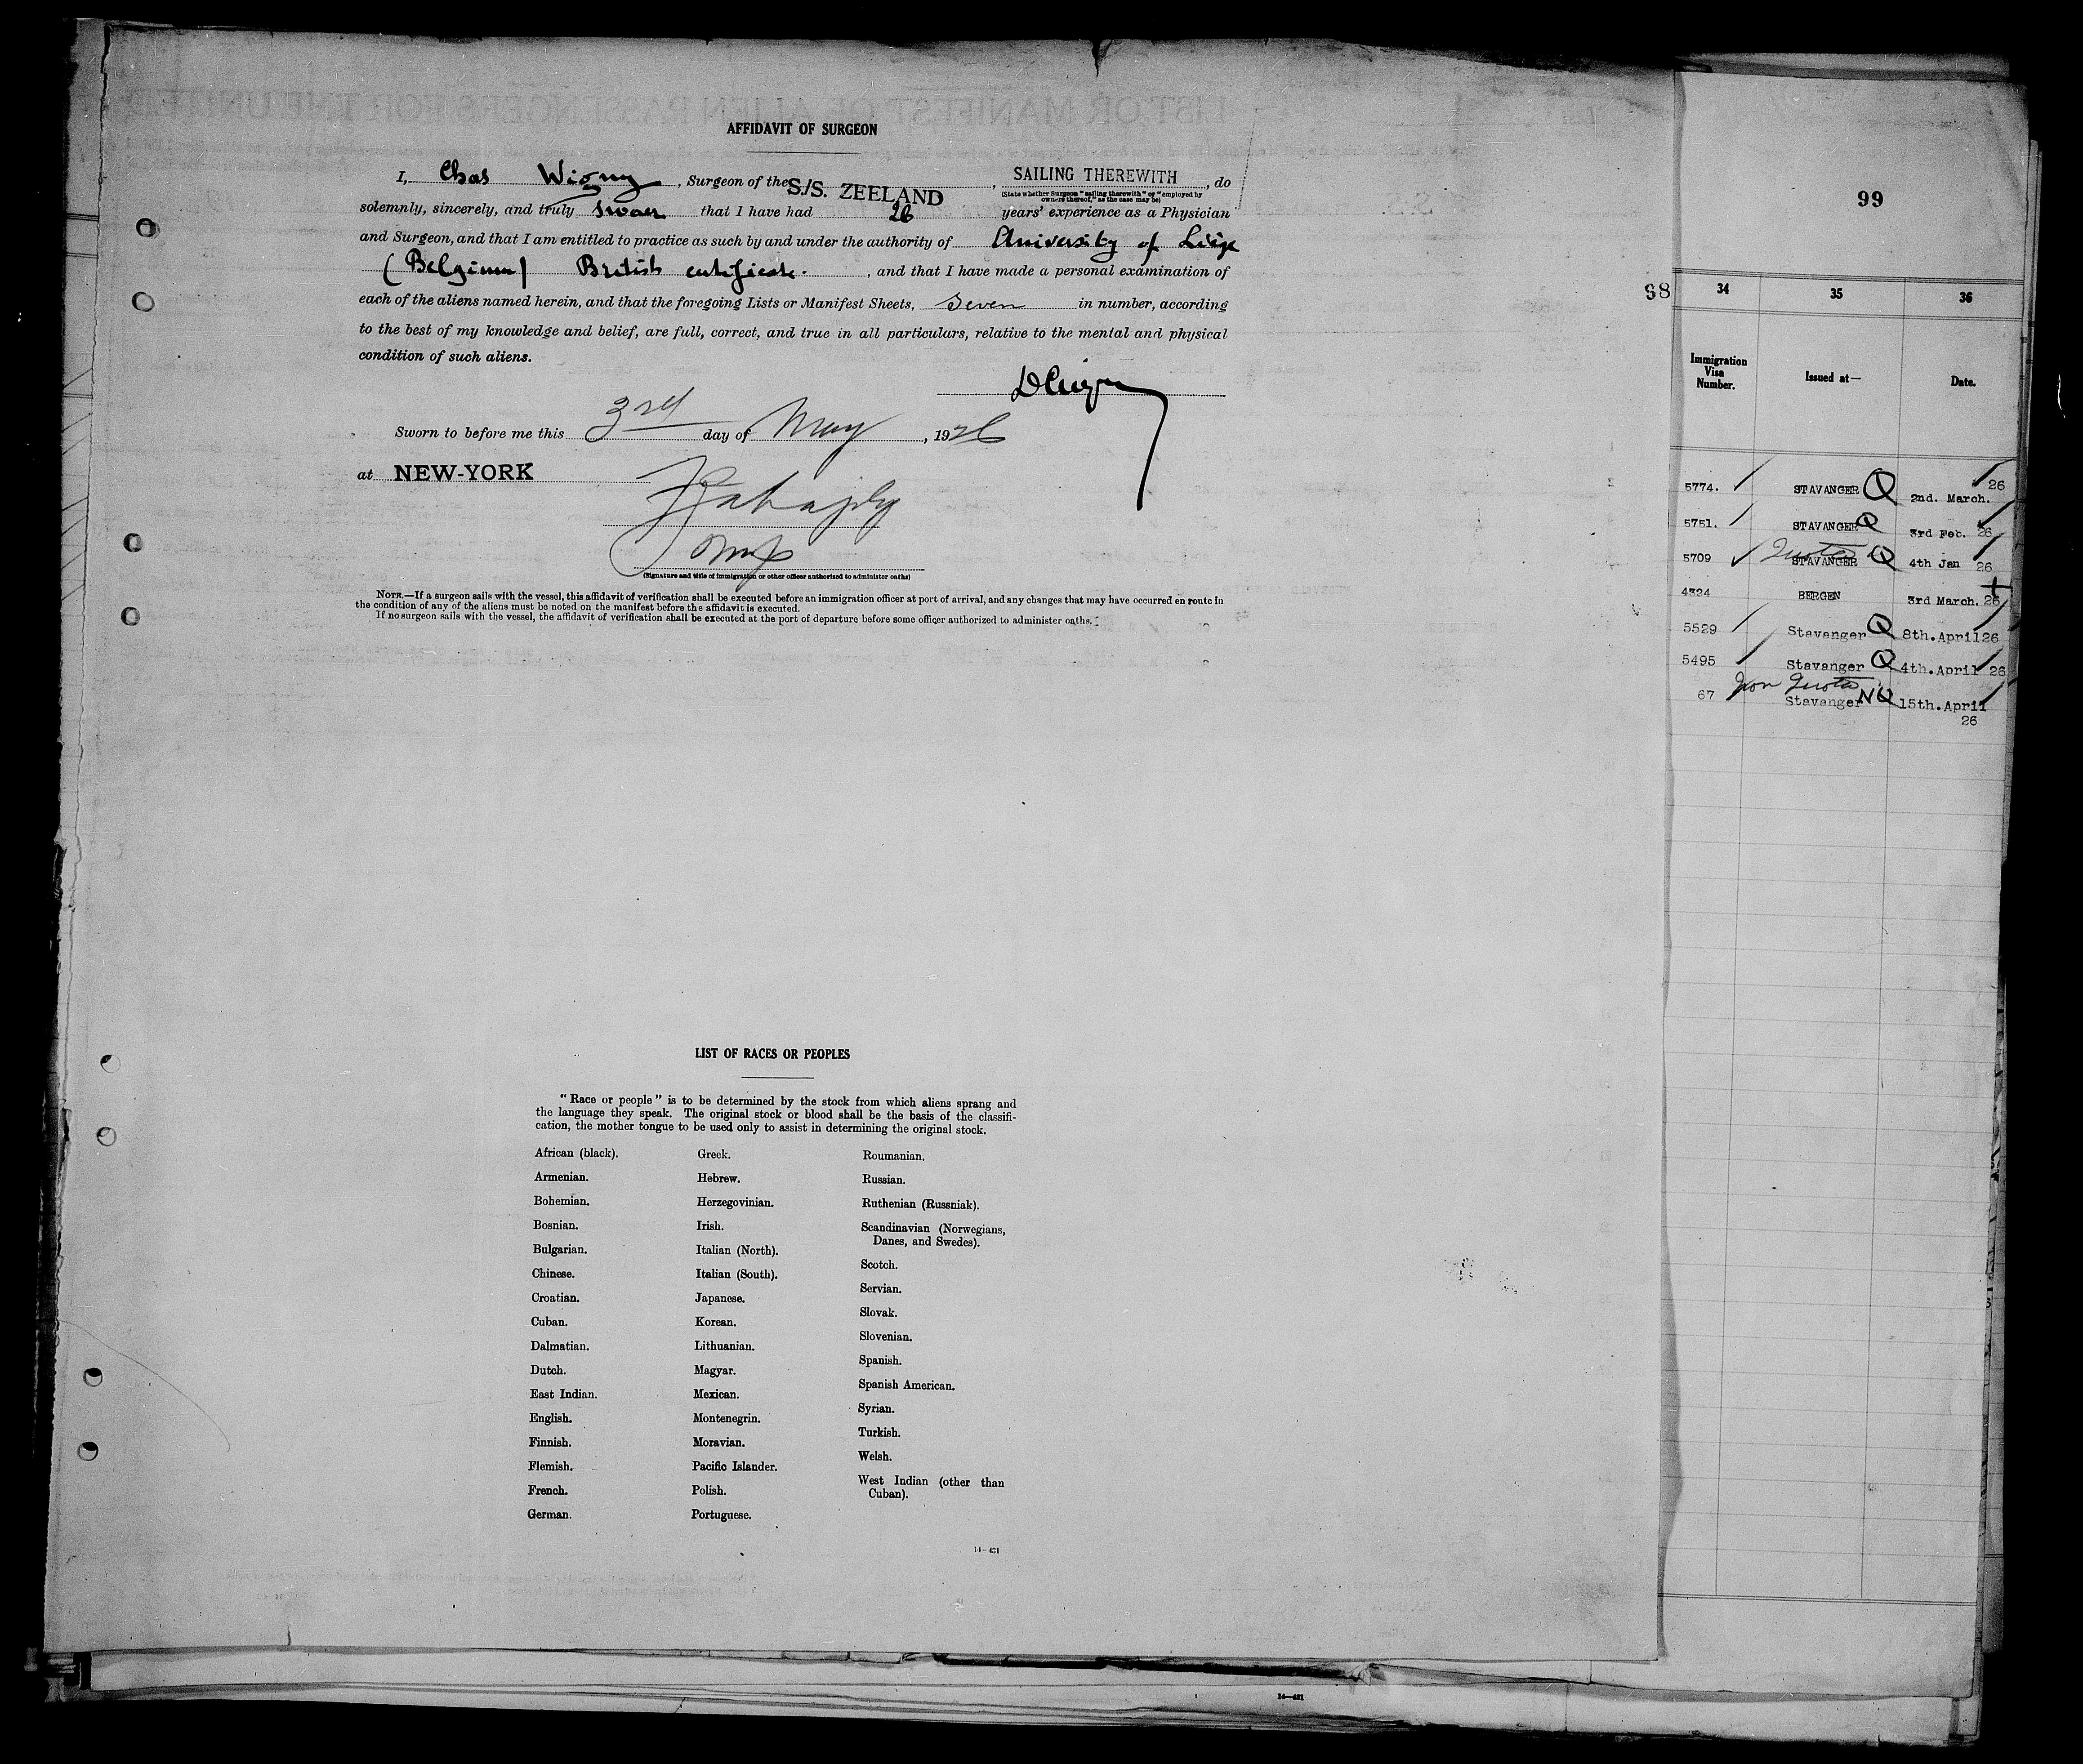 AFFIDAVIT OF SURGEON
I, Chas Wigny, Surgeon of the S./S. ZEELAND, SAILING THEREWITH, do
(State whether Surgeon "sailing therewith" or "employed by
owners thereof," as the case may be)
solemnly, sincerely, and truly swear that I have had 26 years' experience as a Physician
and Surgeon, and that I am entitled to practice as such by and under the authority of University of Liége
(Belgium) British certificate., and that I have made a personal examination of
each of the aliens named herein, and that the foregoing Lists or Manifest Sheets, seven in number, according
to the best of my knowledge and belief, are full, correct, and true in all particulars, relative to the mental and physical
condition of such aliens.
Sworn to before me this 3rd day of May, 1926
at NEW-YORK
(Signature and title of immigration or other officer authorized to administer oaths)
NOTE.—If a surgeon sails with the vessel, this affidavit of verification shall be executed before an immigration officer at port of arrival, and any changes that may have occurred en route in
the condition of any of the aliens must be noted on the manifest before the affidavit is executed.
If no surgeon sails with the vessel, the affidavit of verification shall be executed at the port of departure before some officer authorized to administer oaths.
LIST OF RACES OR PEOPLES
"Race or people" is to be determined by the stock from which aliens sprang and
the language they speak. The original stock or blood shall be the basis of the classifi-
cation, the mother tongue to be used only to assist in determining the original stock.
African (black).
Armenian.
Bohemian.
Bosnian.
Bulgarian.
Chinese.
Croatian.
Cuban.
Dalmatian.
Dutch.
East Indian.
English.
Finnish.
Flemish.
French.
German.
Greek.
Hebrew.
Herzegovinian.
Irish.
Italian (North).
Italian (South).
Japanese.
Korean.
Lithuanian.
Magyar.
Mexican.
Montenegrin.
Moravian.
Pacific Islander.
Polish.
Portuguese.
Roumanian.
Russian.
Ruthenian (Russniak).
Scandinavian (Norwegians,
Danes, and Swedes).
Scotch.
Servian.
Slovak.
Slovenian.
Spanish.
Spanish American.
Syrian.
Turkish.
Welsh.
West Indian (other than
Cuban).
14—421
99
98
34 35 36
Immigration
Visa
Number.
Issued at—
Date.
5774. STAVANGER Q 2nd. March. 26
5751. STAVANGER Q 3rd Feb. 26
5709 Quota STAVANGER Q 4th Jan 26
4324 BERGEN 3rd March. 26
5529 Stavanger Q 8th.April 26
5495 Stavanger Q 4th.April 26
67 Non Quota Stavanger NQ 15th.April
26
14—421